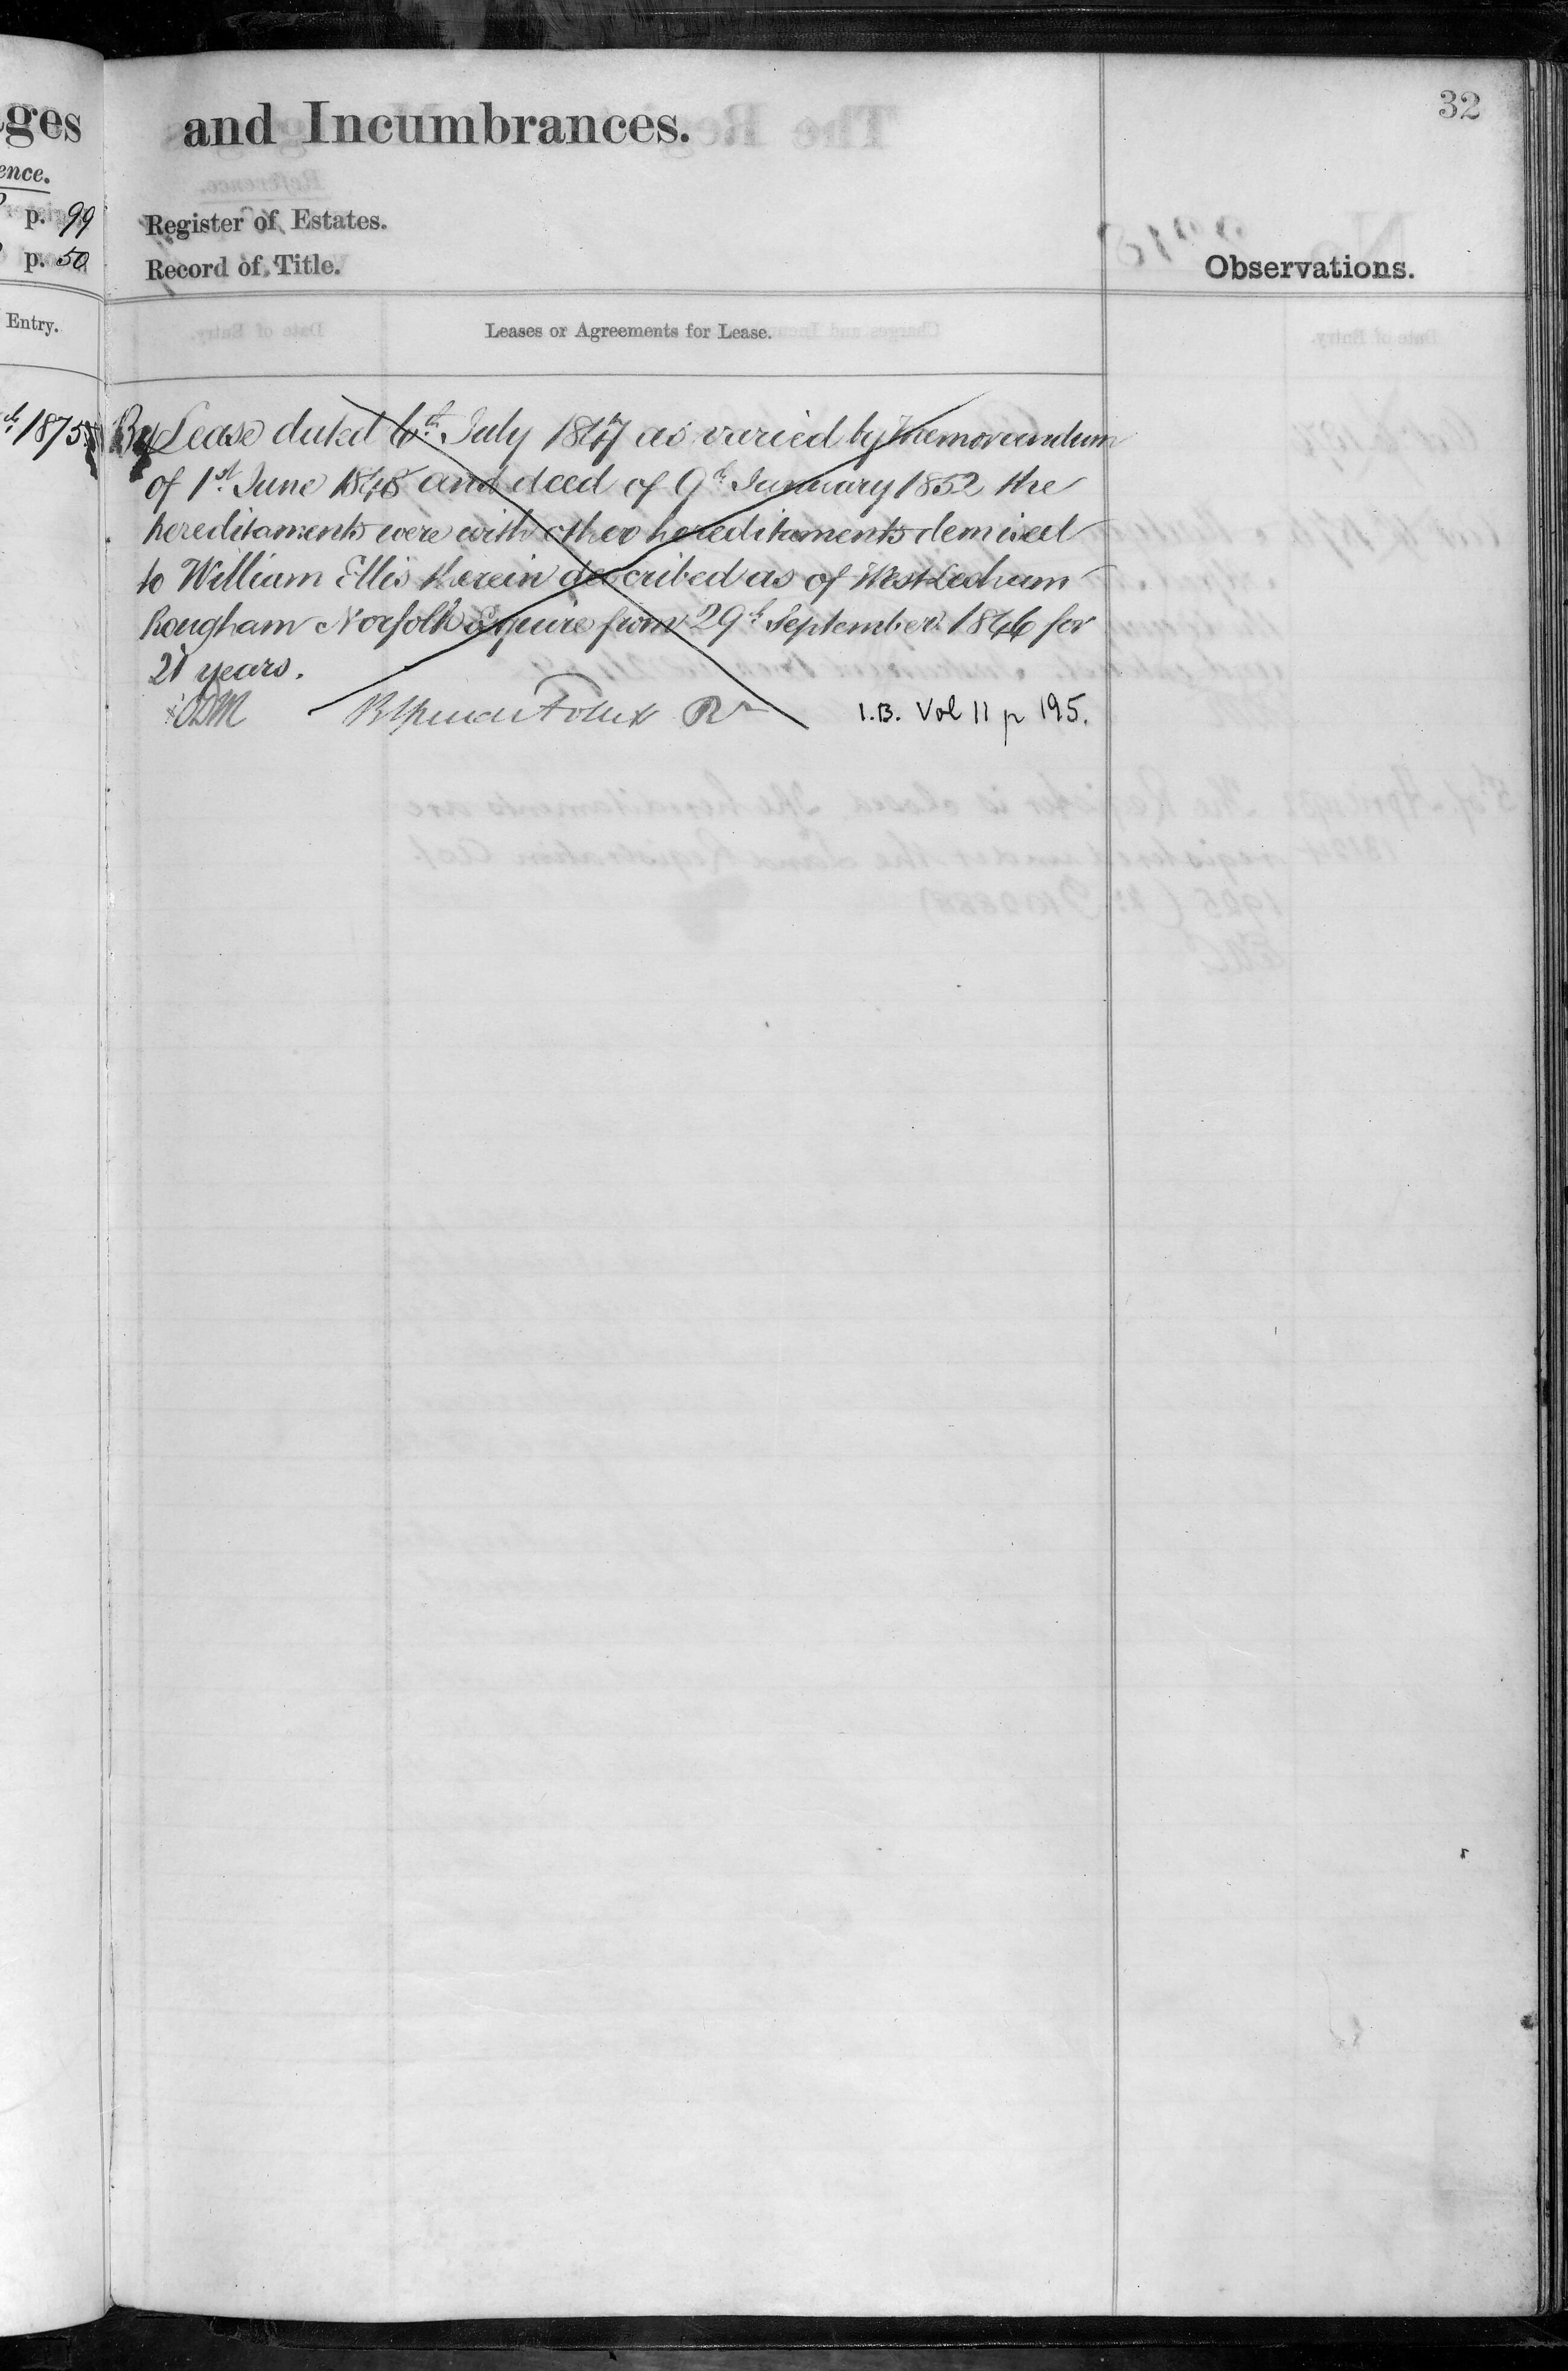 32
ges
and Incumbrances.
ence.
p. 99
Register of Estates.
p. 50
Record of Title.
Observations.
Entry.
Leases or Agreements for Lease.
1875
By Lease dated 6th July 1847 as varied by Memorandum
of 1st June 1848 and deed of 9th January 1852 the
hereditaments were with other hereditaments demised
to William Ellis therein described as of West Lecham
Rougham Norfolk Esquire from 29th September 1846 for
21 years.
I.B. Vol 11 p 195.